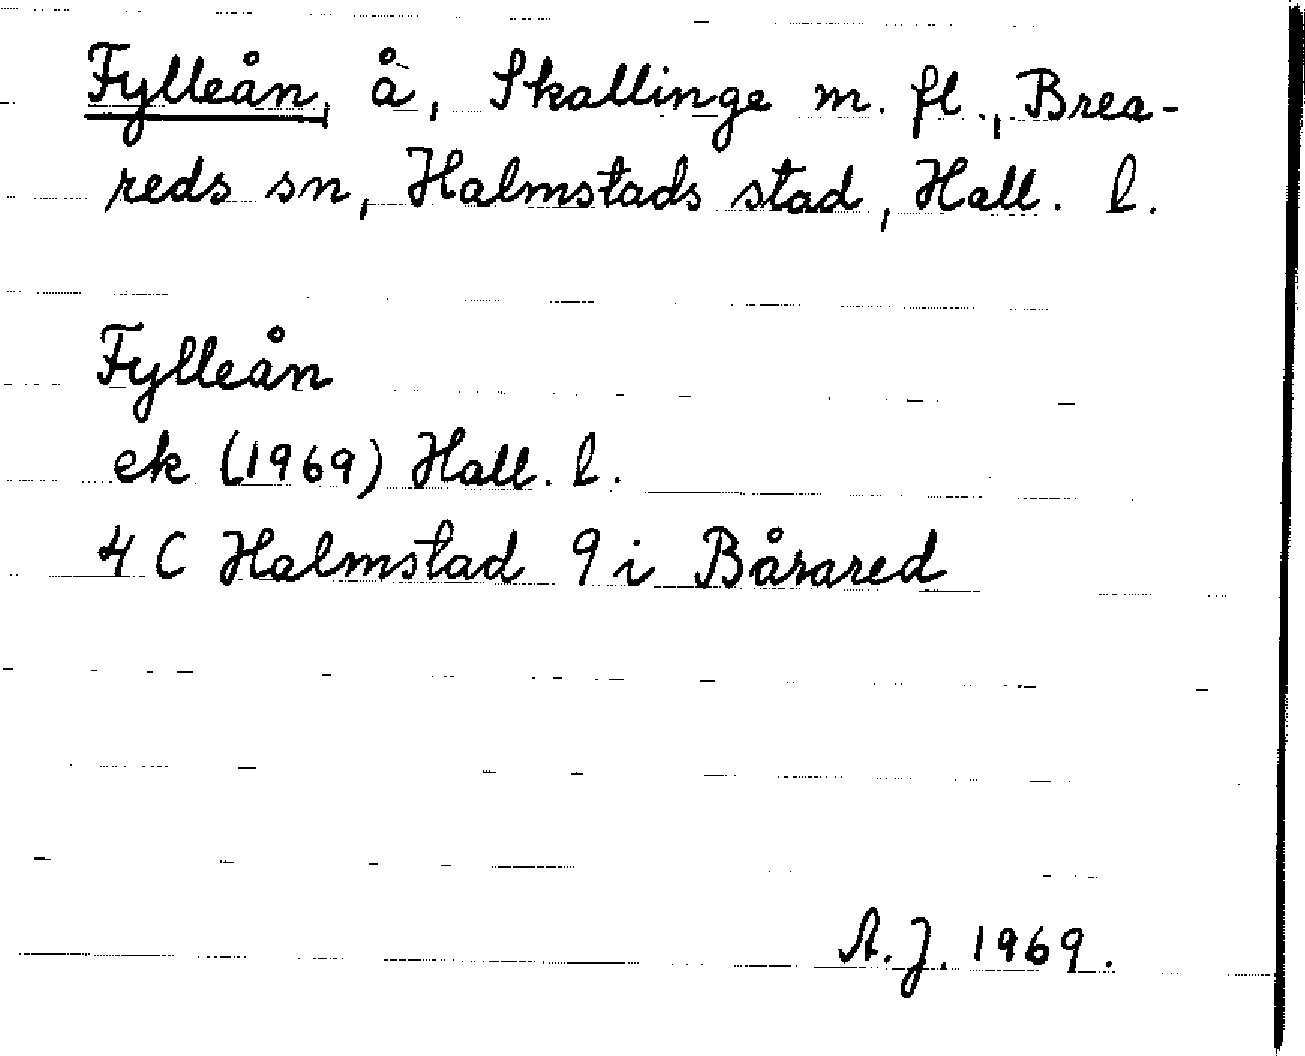 Fylleån, å, Skallinge m. fl., Brea-
reds sn, Halmstads stad, Hall. l.
Fylleån
ek (1969) Hall. l.
4 C Halmstad 9 i Bårared
A.J. 1969.